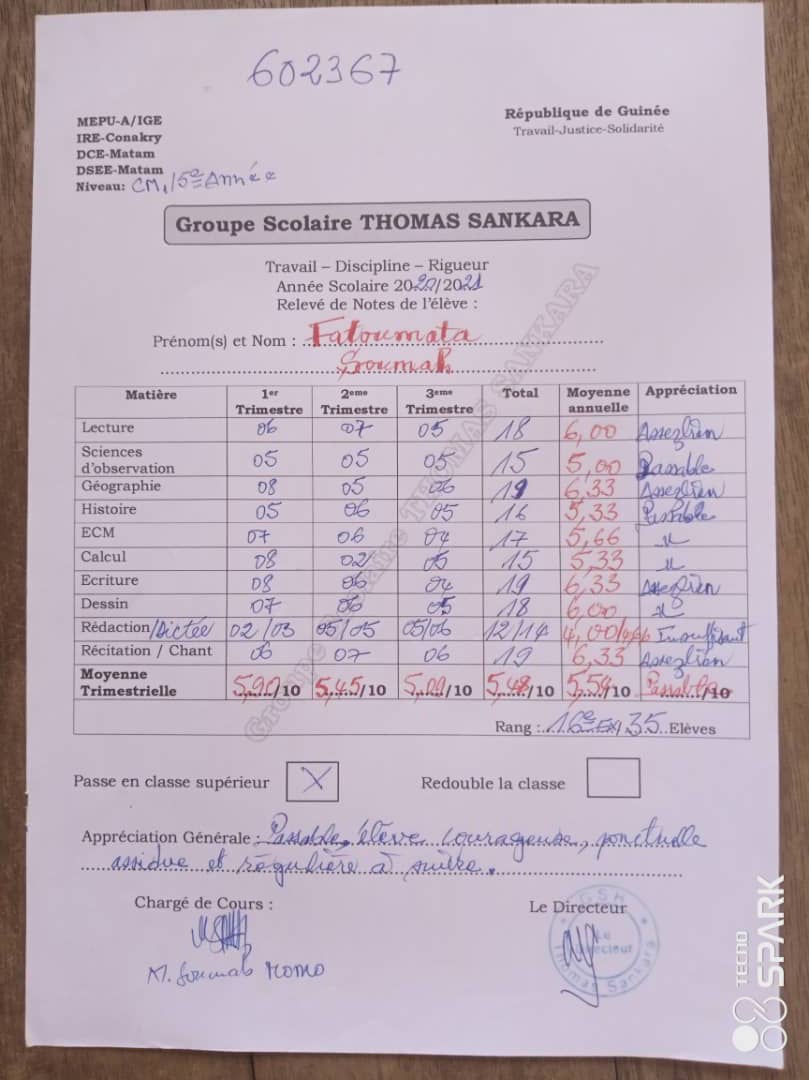 602367
MEPU-A/IGE
IRE-Conakry
DCE-Matam
DSEE-Matam
Niveau: CM1/5e Année
République de Guinée
Travail-Justice-Solidarité
Groupe Scolaire THOMAS SANKARA
Travail – Discipline – Rigueur
Année Scolaire 2020/2021
Relevé de Notes de l'élève :
Prénom(s) et Nom : Fatoumata
Soumah
Matière 1er Trimestre 2eme Trimestre 3eme Trimestre Total Moyenne annuelle Appréciation
Lecture 06 07 05 18 6,00 Assez bien
Sciences d'observation 05 05 05 15 5,00 Passable
Géographie 08 05 06 19 6,33 Assez bien
Histoire 05 06 05 16 5,33 Passable
ECM 07 06 04 17 5,66 "
Calcul 08 02 05 15 5,33 "
Ecriture 08 06 04 19 6,33 Assez bien
Dessin 07 06 05 18 6,00 "
Rédaction/Dictée 02/03 05/05 05/06 12/14 4,00/4,66 Insuffisant
Récitation / Chant 06 07 06 19 6,33 Assez bien
Moyenne Trimestrielle 5,90/10 5,45/10 5,00/10 5,48/10 5,54/10 Passable/10
Rang : 16e EX/35 Elèves
Passe en classe supérieur X Redouble la classe
Appréciation Générale : Passable, élève courageuse, ponctuelle
assidue et régulière à suivre.
Chargé de Cours :
Le Directeur
M. Soumah Momo
GSH
Le Directeur
Thomas Sankara
Groupe Scolaire THOMAS SANKARA
TECNO
SPARK